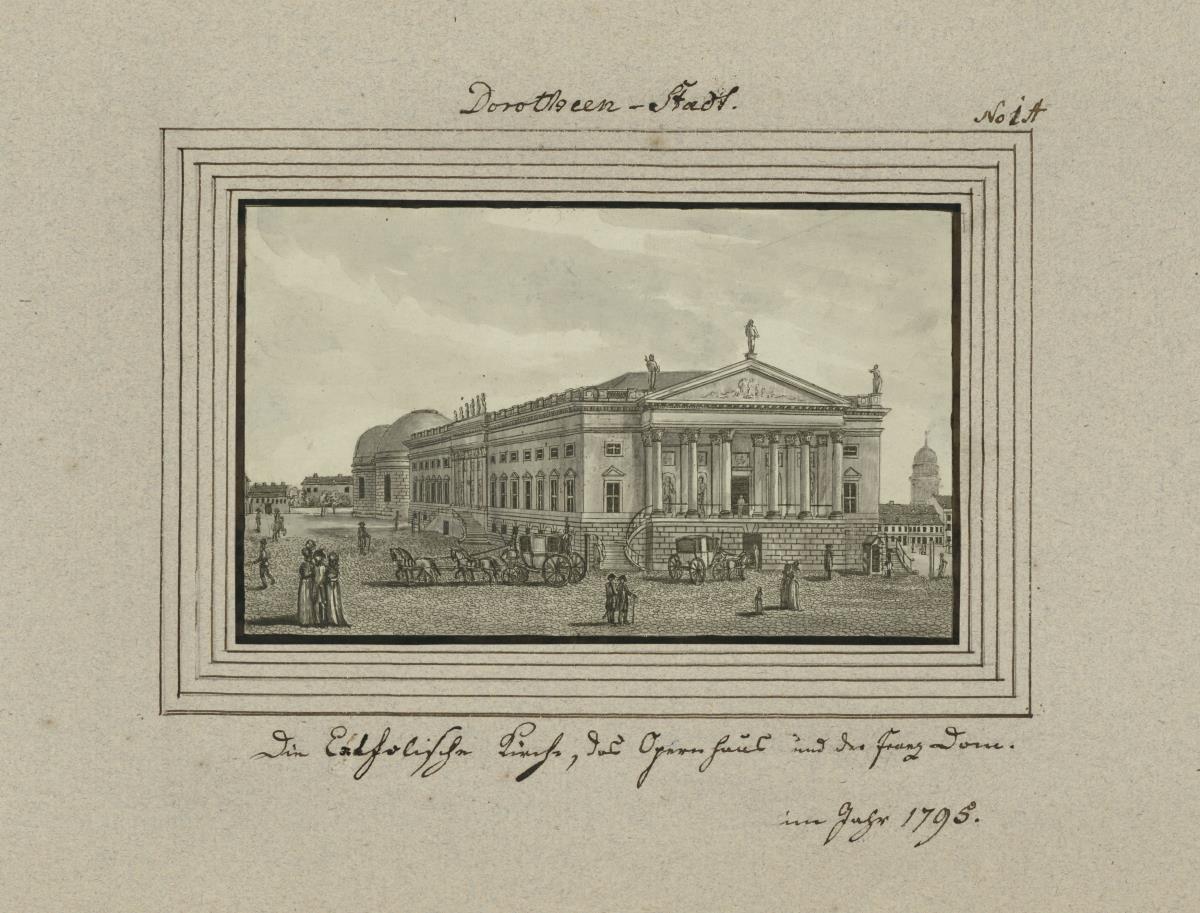 Dorotheen-Stadt.
No 1A
Die Catholische Kirche, das Opernhaus und der Franz Dom.
im Jahr 1795.